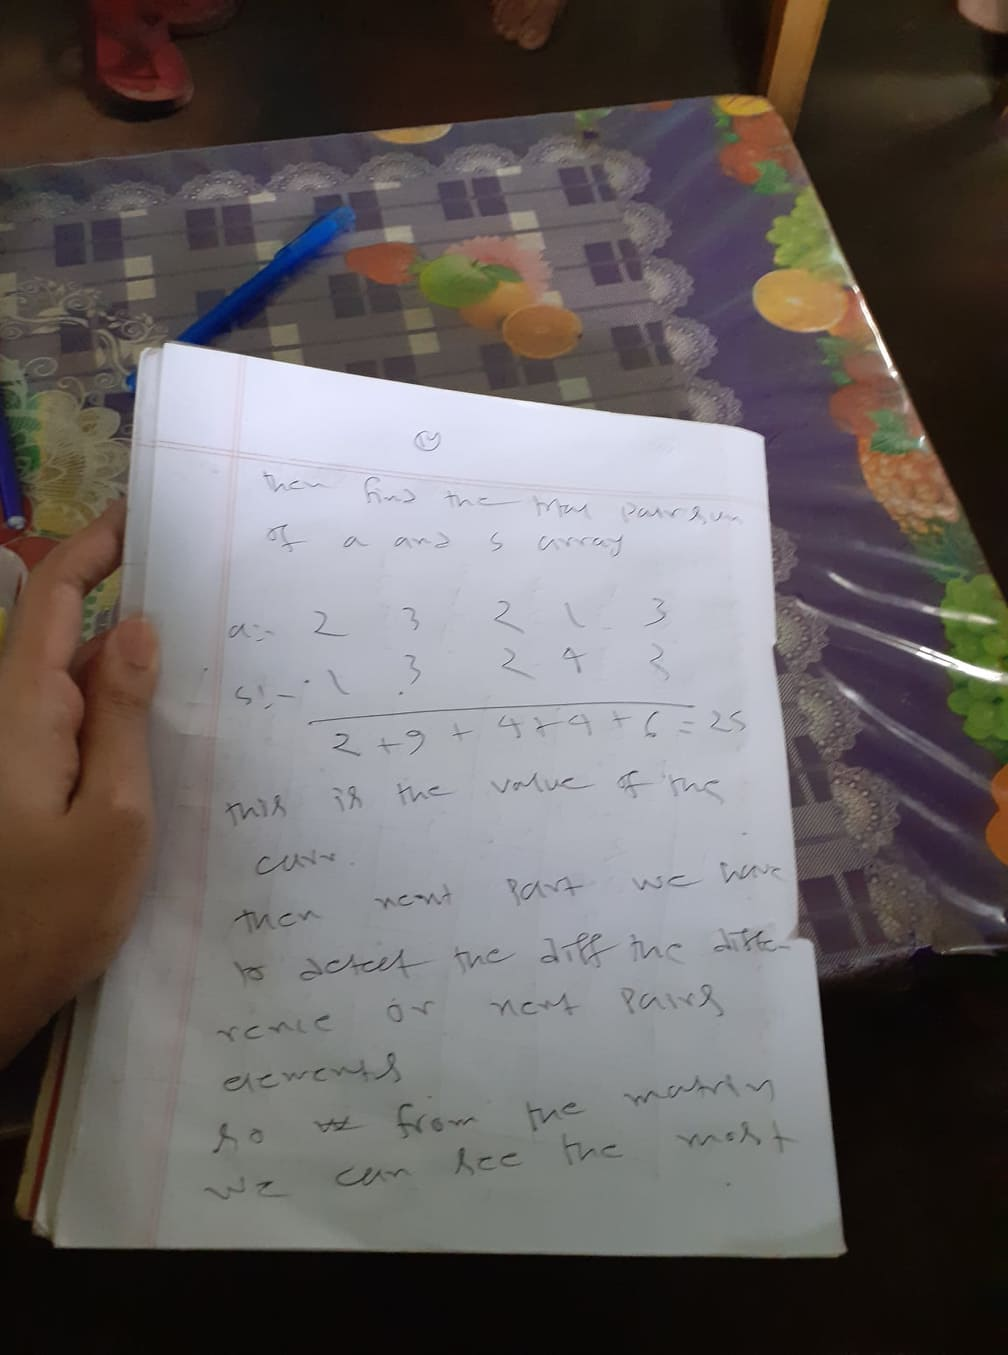 then find the max pair sum
of a and s array
a:- 2 3 2 1 3
s:- 1 3 2 4 2
2 + 9 + 4 + 4 + 6 = 25
this is the value of the
curr.
then next part we have
to detect the diff the diffe-
rence or next pairs
elements
so from the matrix
we can see the most